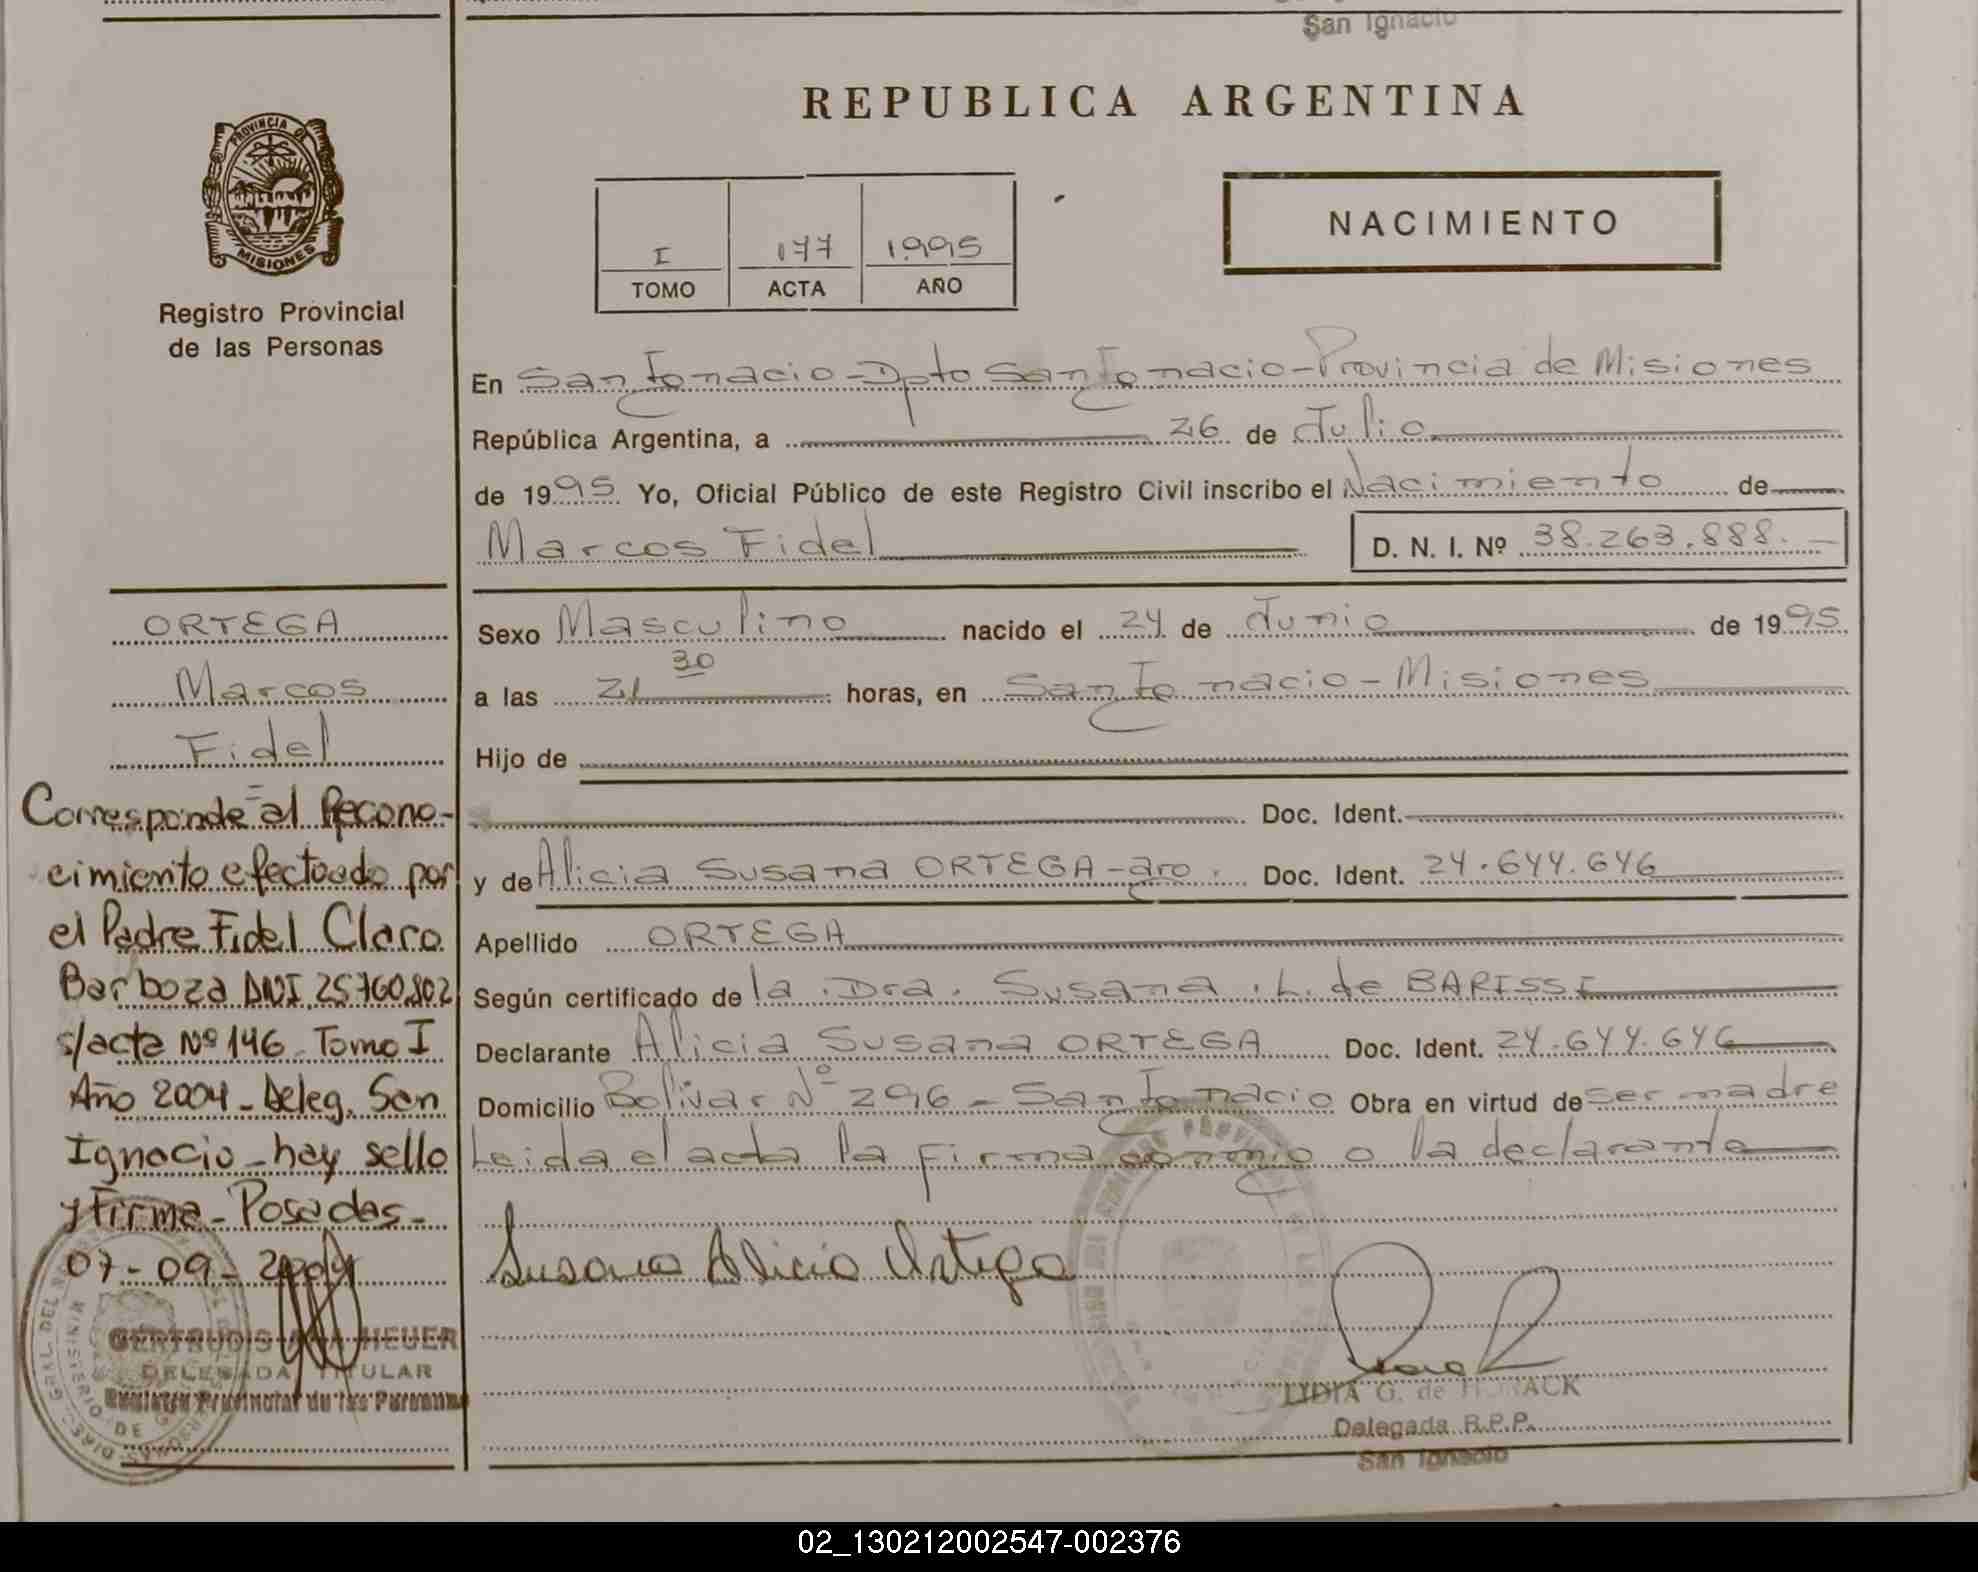 San Ignacio
REPUBLICA ARGENTINA
PROVINCIA DE
MISIONES
Registro Provincial
de las Personas
NACIMIENTO
I 177 1995
TOMO ACTA AÑO
En San Ignacio - Dpto San Ignacio - Provincia de Misiones
República Argentina, a 26 de Julio
de 1995 Yo, Oficial Público de este Registro Civil inscribo el Nacimiento de
Marcos Fidel D. N. I. Nº 38.263.888.-
ORTEGA
Marcos
Fidel
Corresponde al Recono-
cimiento efectuado por
el Padre Fidel Claro
Barboza DNI 25760.802
s/acta Nº 146 Tomo I
Año 2004 - Deleg. San
Ignacio - hay sello
y Firma - Posadas -
07-09-2004
GERTRUDIS HEUER
DELEGADA TITULAR
Registro Provincial de las Personas
Sexo Masculino nacido el 24 de Junio de 1995
a las 21 30 horas, en San Ignacio - Misiones
Hijo de
Doc. Ident.
y de Alicia Susana ORTEGA - arg. Doc. Ident. 24.644.646
Apellido ORTEGA
Según certificado de la Dra. Susana L. de BARISSI
Declarante Alicia Susana ORTEGA Doc. Ident. 24.644.646
Domicilio Bolivar Nº 296 - San Ignacio Obra en virtud de ser madre
Leida el acta la firma conmigo o la declarante
Susana Alicia Ortega
LYDIA G. de
Delegada R.P.P.
San Ignacio
02_130212002547-002376